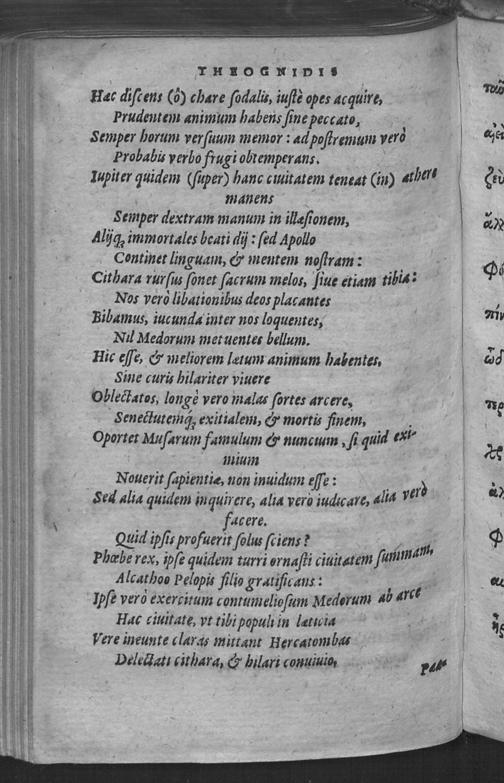 THEOGNIDIS
Hac discens (ô) chare sodalis, iustè opes acquire,
Prudentem animum habens sine peccato,
Semper horum versuum memor : ad postremum verò
Probabis verbo frugi obtemperans.
Iupiter quidem (super) hanc ciuitatem teneat (in) athere
manens
Semper dextram manum in illæsionem,
Alijq; immortales beati dij : sed Apollo
Continet linguam, & mentem nostram :
Cithara rursus sonet sacrum melos, siue etiam tibia :
Nos verò libationibus deos placantes
Bibamus, iucunda inter nos loquentes,
Nil Medorum metuentes bellum.
Hic esse, & meliorem lætum animum habentes,
Sine curis hilariter viuere
Oblectatos, longè vero malas sortes arcere,
Senectutemq́; exitialem, & mortis finem,
Oportet Musarum famulum & nuncium, si quid exi-
mium
Nouerit sapientiæ, non inuidum esse :
Sed alia quidem inquirere, alia verò iudicare, alia verò
facere.
Quid ipsis profuerit solus sciens ?
Phœbe rex, ipse quidem turri ornasti ciuitatem summam,
Alcathoo Pelopis filio gratificans :
Ipse verò exercitum contumeliosum Medorum ab arce
Hac ciuitate, vt tibi populi in læticia
Vere ineunte claras mittant Hercatombas
Delectati cithara, & hilari conuiuio,